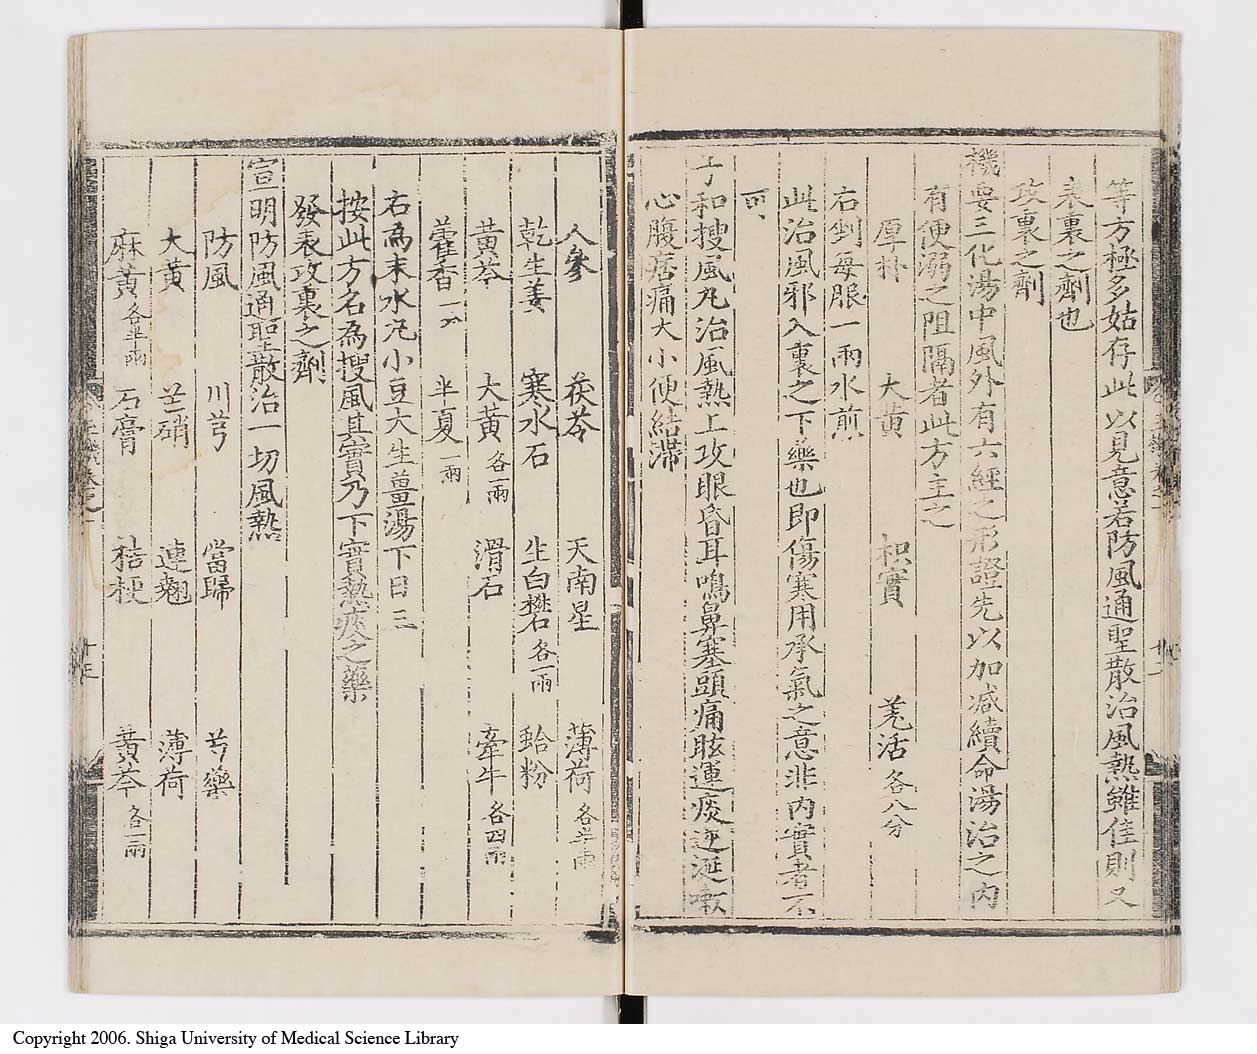 等方極多姑存此以見意若防風通聖散治風熱雖佳則又
表裏之劑也
攻裏之劑
機要三化湯中風外有六經之形證先以加减續命湯治之内
有便溺之阻隔者此方主之
厚朴 大黄 枳實 羌活各八分
右剉每服一兩水煎
此治風邪入裏之下藥也即傷寒用承氣之意非内實者不
可
子和搜風丸治風熱上攻眼昏耳鳴鼻塞頭痛眩運痰逆涎嗽
心腹痞痛大小便結滯
人參 茯苓 天南星 薄荷各半兩
乾生姜 寒水石 生白礬各一兩 蛤粉
黄芩 大黄各一兩 滑石 牽牛各四兩
藿香一分 半夏一兩
右為末水丸小豆大生薑湯下日三
按此方名為搜風其實乃下實熱痰之藥
發表攻裏之劑
宣明防風通聖散治一切風熱
防風 川芎 當歸 芍藥
大黄 芒硝 連翹 薄荷
麻黄各半兩 石膏 桔梗 黄芩各一兩
Copyright 2006. Shiga University of Medical Science Library